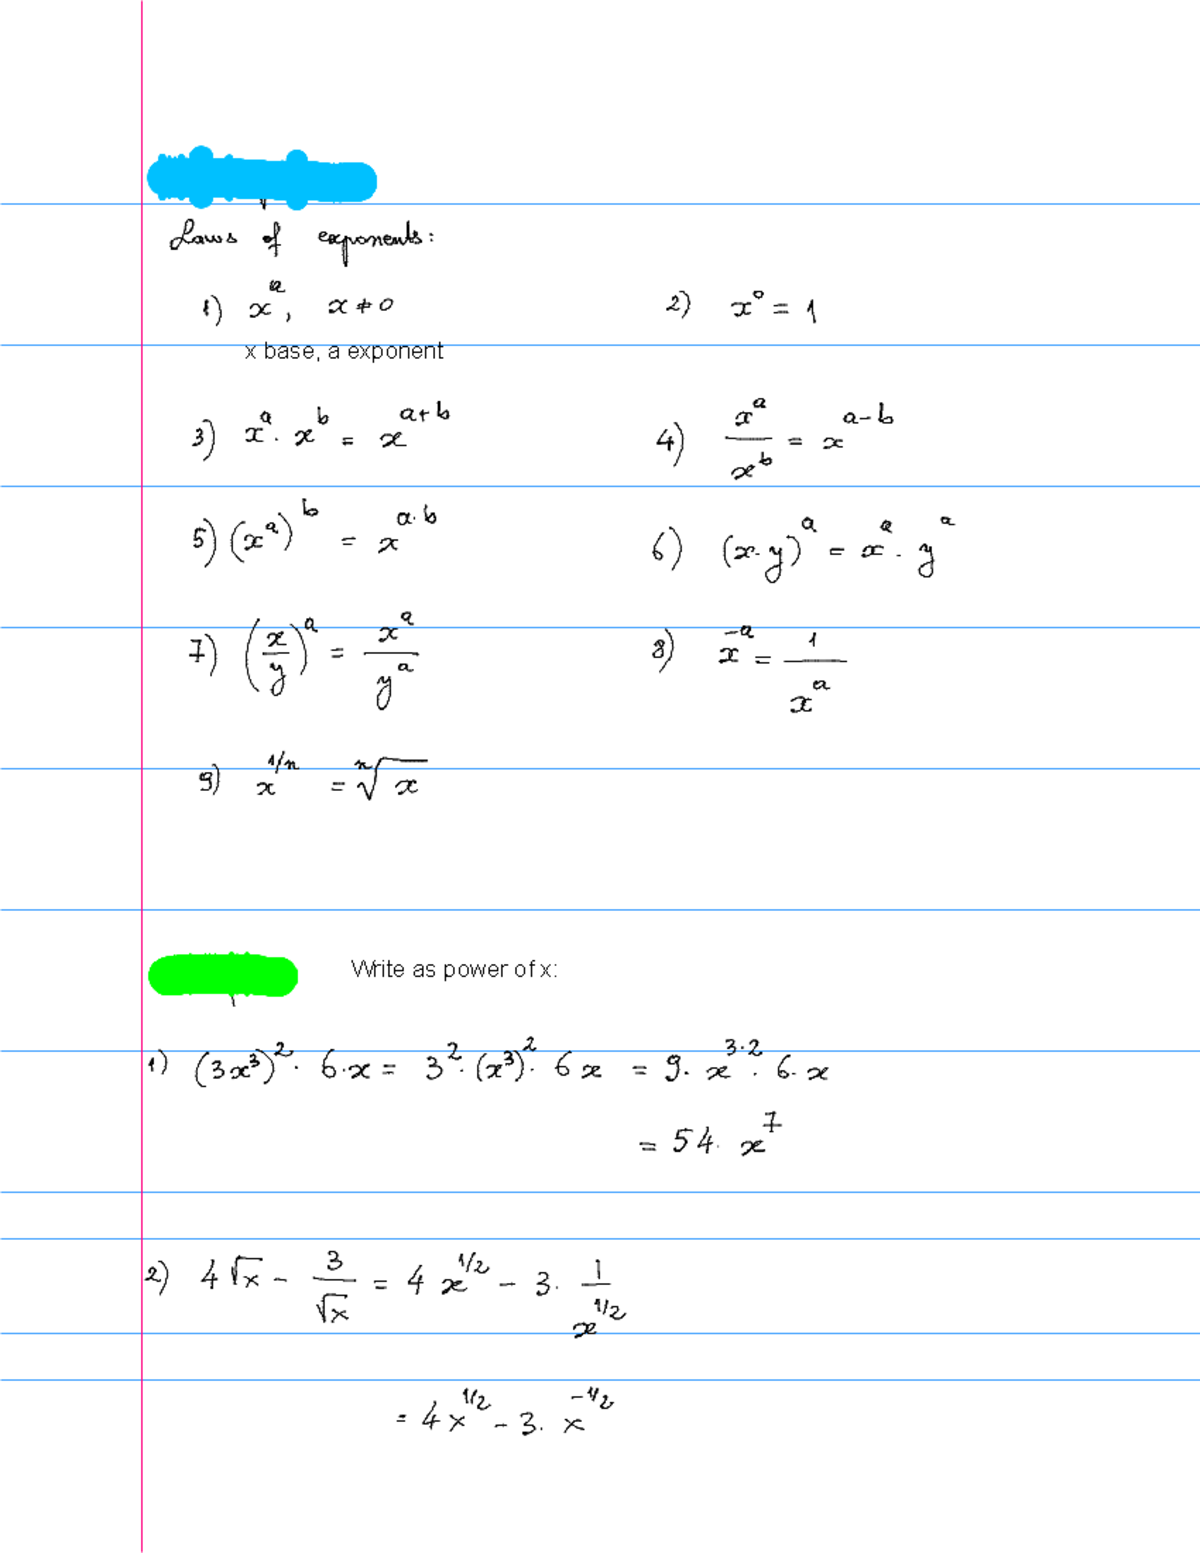 Laws of exponents:
1) x^a, x ≠ 0
2) x^0 = 1
x base, a exponent
3) x^a · x^b = x^(a+b)
4) x^a / x^b = x^(a-b)
5) (x^a)^b = x^(a·b)
6) (x·y)^a = x^a · y^a
7) (x/y)^a = x^a / y^a
8) x^(-a) = 1 / x^a
9) x^(1/n) = ⁿ√x
Write as power of x:
1) (3x^3)^2 · 6·x = 3^2 · (x^3)^2 · 6x = 9 · x^(3·2) · 6·x
= 54 · x^7
2) 4√x - 3/√x = 4 x^(1/2) - 3 · 1/x^(1/2)
= 4x^(1/2) - 3 · x^(-1/2)